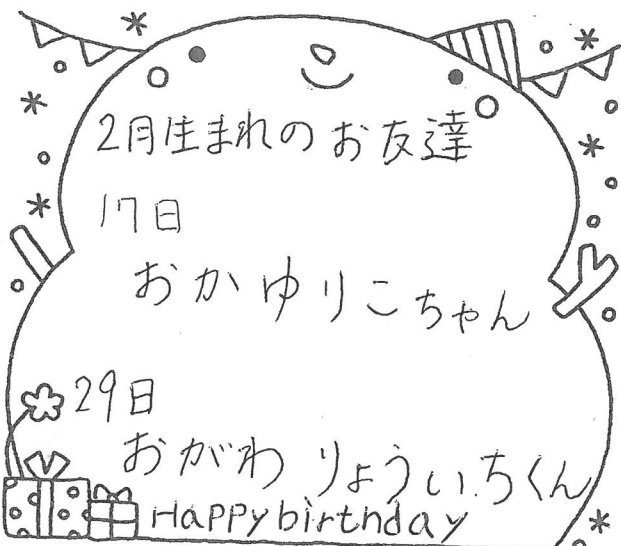 2月生まれのお友達
17日
おかゆりこちゃん
29日
おがわ りょういちくん
Happy birthday